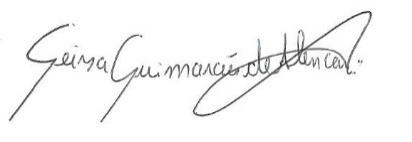 Geirsa Guimarães de Alencar